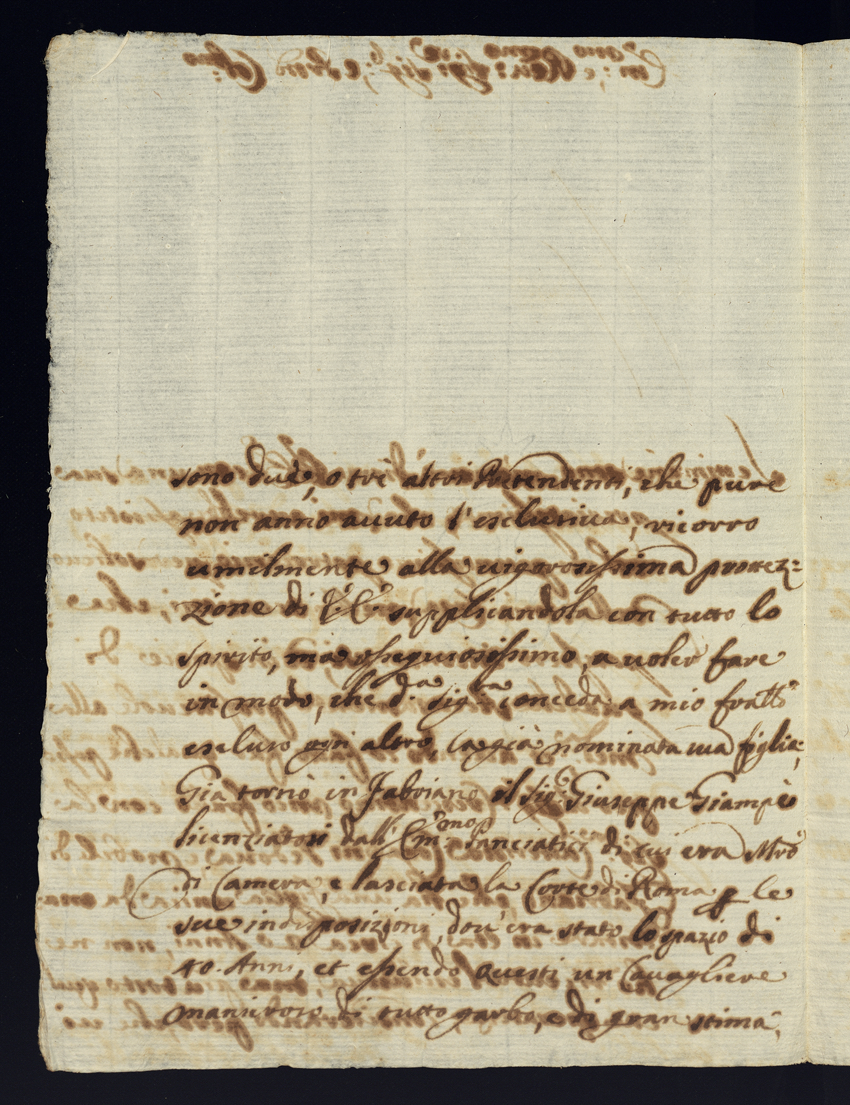 sono due, o tre altri Pretendenti, che pure
non anno avuto l'esclusiva, ricorro
umilmente alla vigorosissima protez=
zione di V: E: supplicandola con tutto lo
spirito, mà ossequiosissimo, a voler fare
in modo, che d.ª Sig.ra conceda a mio frat͠lo
escluso ogni altro, la già nominata sua figlia;
Gia tornò in Fabriano il Sig: Giuseppe Giampè
licenziatosi dall' Em:mo Panciatici di cui era Mrõ
di Camera, e lasciata la Corte di Roma p le
sue indisposizioni, dov'era stato lo spazio di
40. Anni, et essendo questi un Cavagliere
manieroso di tutto garbo, e di gran stima,